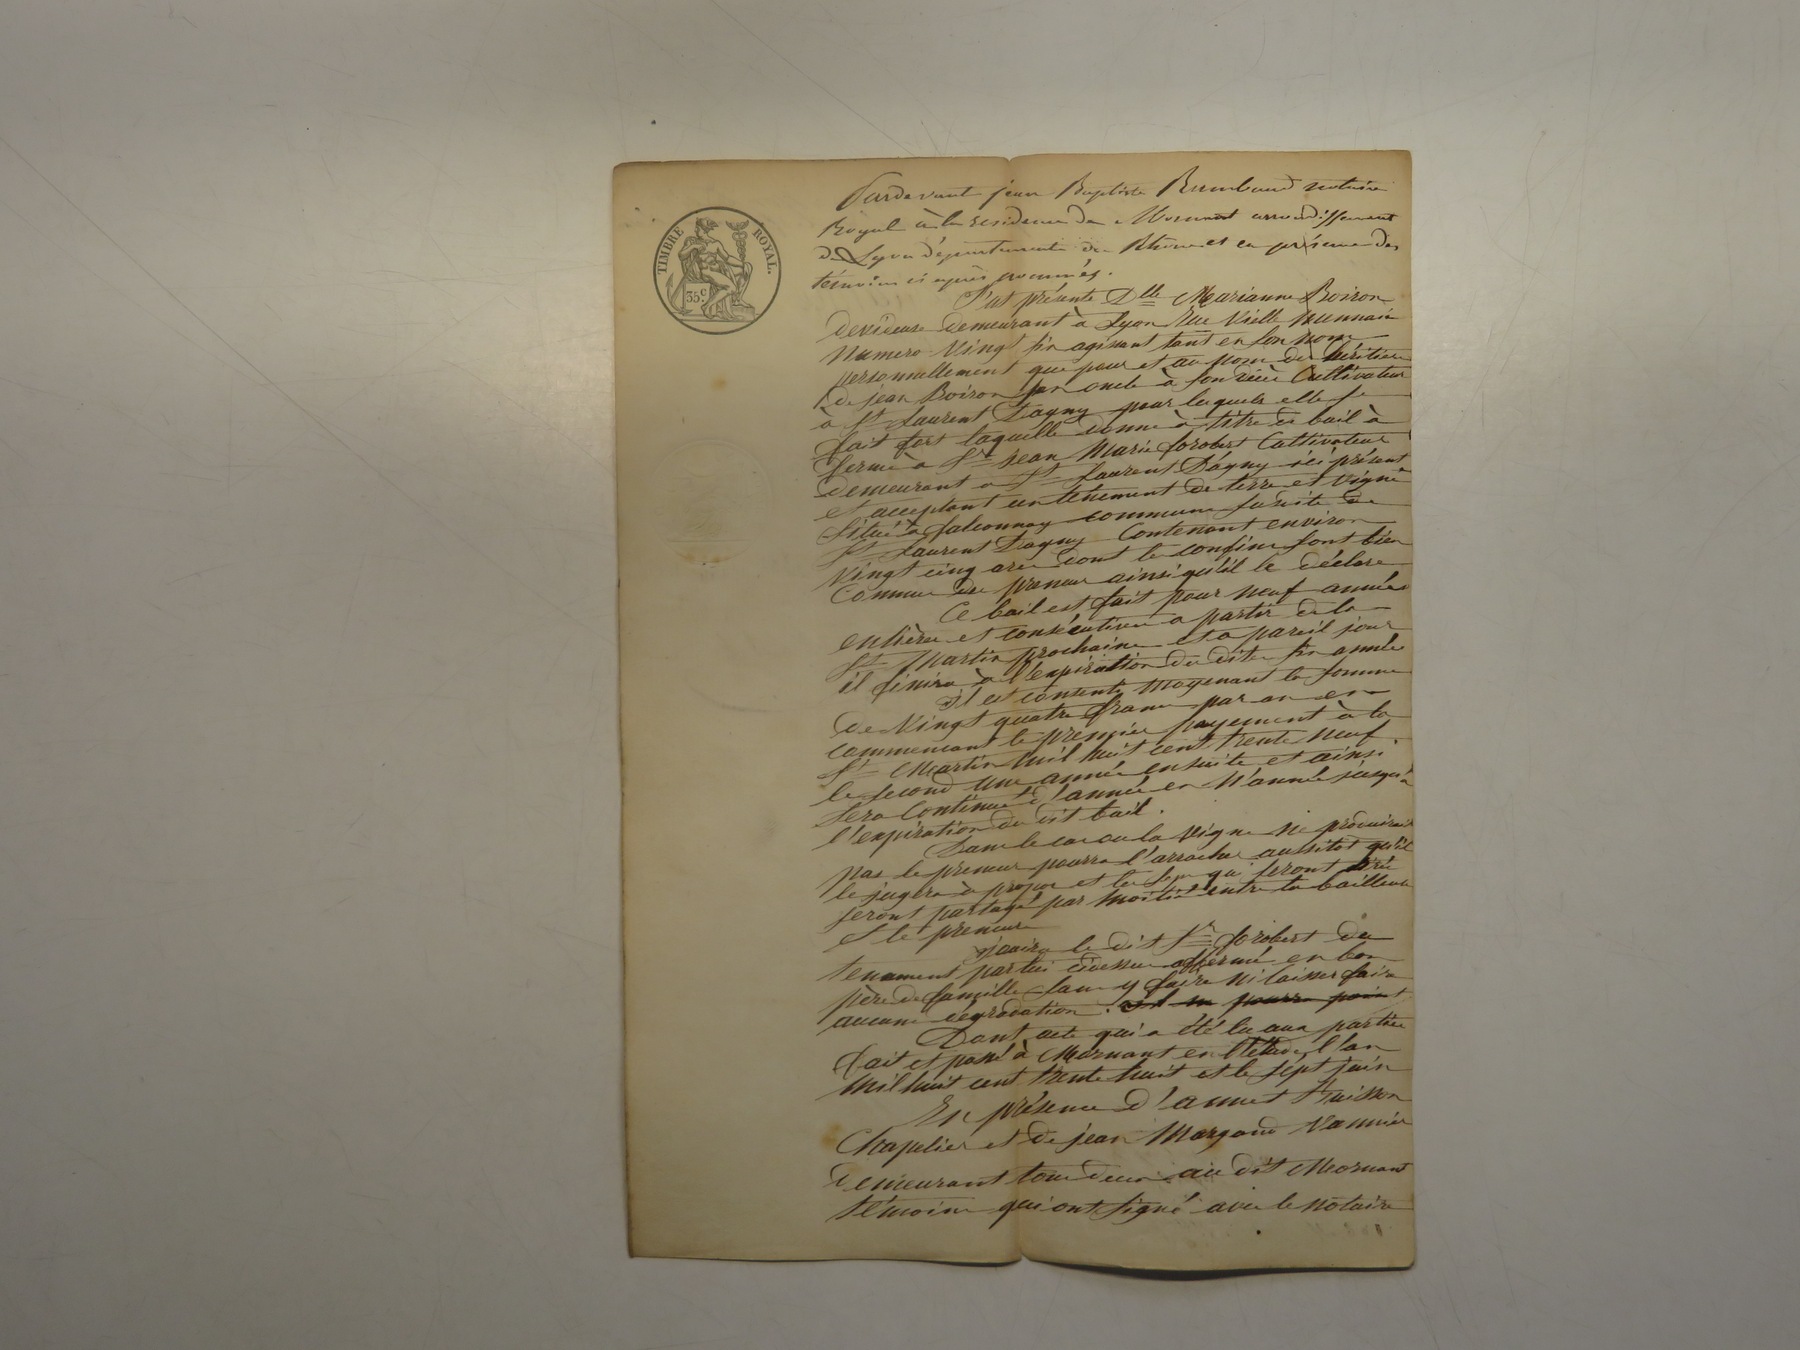 TIMBRE ROYAL.
35c.
Pardevant jean Baptiste Rambaud notaire
Royal à la residence de Mornant arrondissement
de Lyon département du Rhône et en présence des
témoins ci après nommés.
S'est présente Dlle Marianne Boiron
devideuse demeurant à Lyon Rue Vielle Monnaie
Numero Vingt six agissant tant en son nom
personnellement que pour et au nom des héritiers
de jean Boiron son oncle à son décè Cultivateur
à St Laurent Dagny pour lesquels elle se
fait fort laquelle donne à titre de bail à
ferme à Sr jean Marie forobert Cultivateur
demeurant a St Laurent D'agny ici présent
et acceptant un ténement de terre et vigne
situé à falconnay commune susdite de
St Laurent Dagny Contenant environ
Vingt cinq are dont les confins sont bien
Connue du preneur ainsi qu'il le déclare
Ce bail est fait pour neuf années
entières et consécutives a partir de la
St Martin prochaine et a pareil jour
il finira à l'expiration du dites six années
il est consenti Moyenant la somme
de Vingt quatre francs par an en
commencant le premier payement à la
St Martin Mil huit cent trente neuf
le second une année ensuite et ainsi
sera Continué d'année en N'année jusqu'a
l'expiration du dit bail.
Dans le cas ou la vigne ne produirait
pas le preneur pourra l'arracher aussitot qu'il
le jugera à propos et les seps qui seront
seront partagé par Moitié entre la bailleuse
et le preneur
jouira le dit Sr forobert du
tenement par lui cidessus affermé en bon
père de famille sans y faire Ni laisser faire
aucune dégradation. il ne pourra point
Dont acte qui a été lu aux parties
fait et passé à Mornant en l'étude, l'an
Mil huit cent trente huit et le sept juin
En présence d'annet Thuisson
Chapelier et de jean Margand Vannier
demeurant tous deux au dit Mornant
témoins qui ont signé avec le notaire